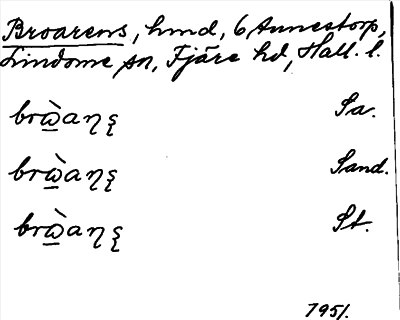 Broarens, hmd, 6 Annestorp,
Lindome sn, Fjäre hd, Hall. l.
brὼ̲aŋ Sa.
brὼ̲aŋ Sand.
brὼ̲aŋ St.
7951.